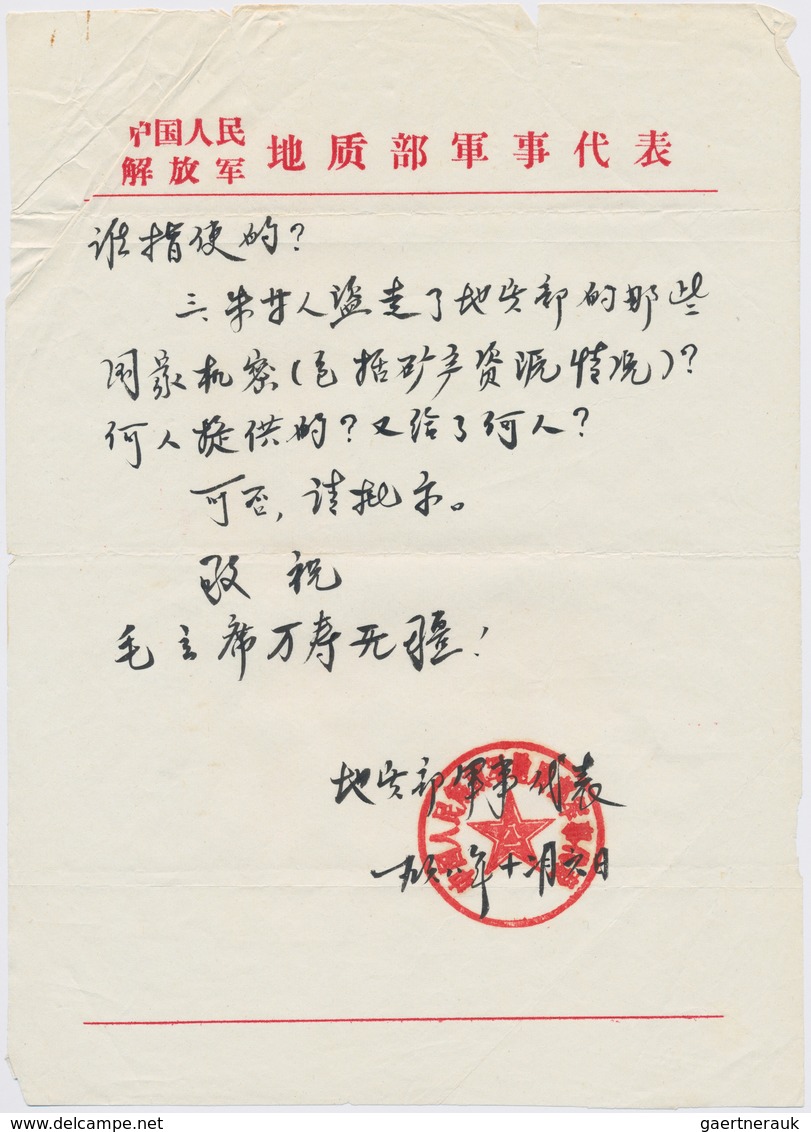 中国人民
解放军 地质部軍事代表
谁指使的?
三、朱某人盗走了地质部的那些
国家机密(包括矿产资源情况)?
何人提供的?又给了何人?
可否,请批示。
敬祝
毛主席万寿无疆!
地质部軍事代表
一九六八年十一月六日
gaertnerauk